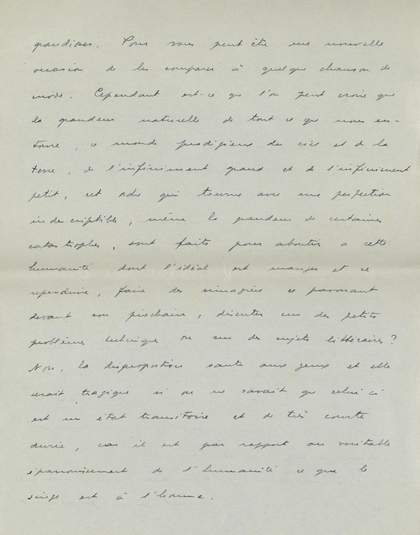 grandioses. Vous vous peut être une nouvelle
occasion de les comparer à quelque chanson de
mode. Cependant est-ce que l'on peut croire que
la grandeur naturelle de tout ce que nous en-
toure, ce monde prodigieux du ciel et de la
terre, de l'infiniment grand et de l'infiniment
petit, cet ordre qui tourne avec une perfection
indescriptible, même la grandeur de certaines
catastrophes, sont faits pour aboutir à cette
humanité dont l'idéal est manger et se
reproduire, faire des simagrées se pavanant
devant son prochaine, discuter sur des petits
problème technique ou sur des sujets littéraires?
Non, la disproportion saute aux yeux et elle
serait tragique si on ne savait que celui ci
est un état transitoire et de très courte
durée, car il est par rapport au veritable
épanouissement de l'humanité ce que le
singe est à l'homme.